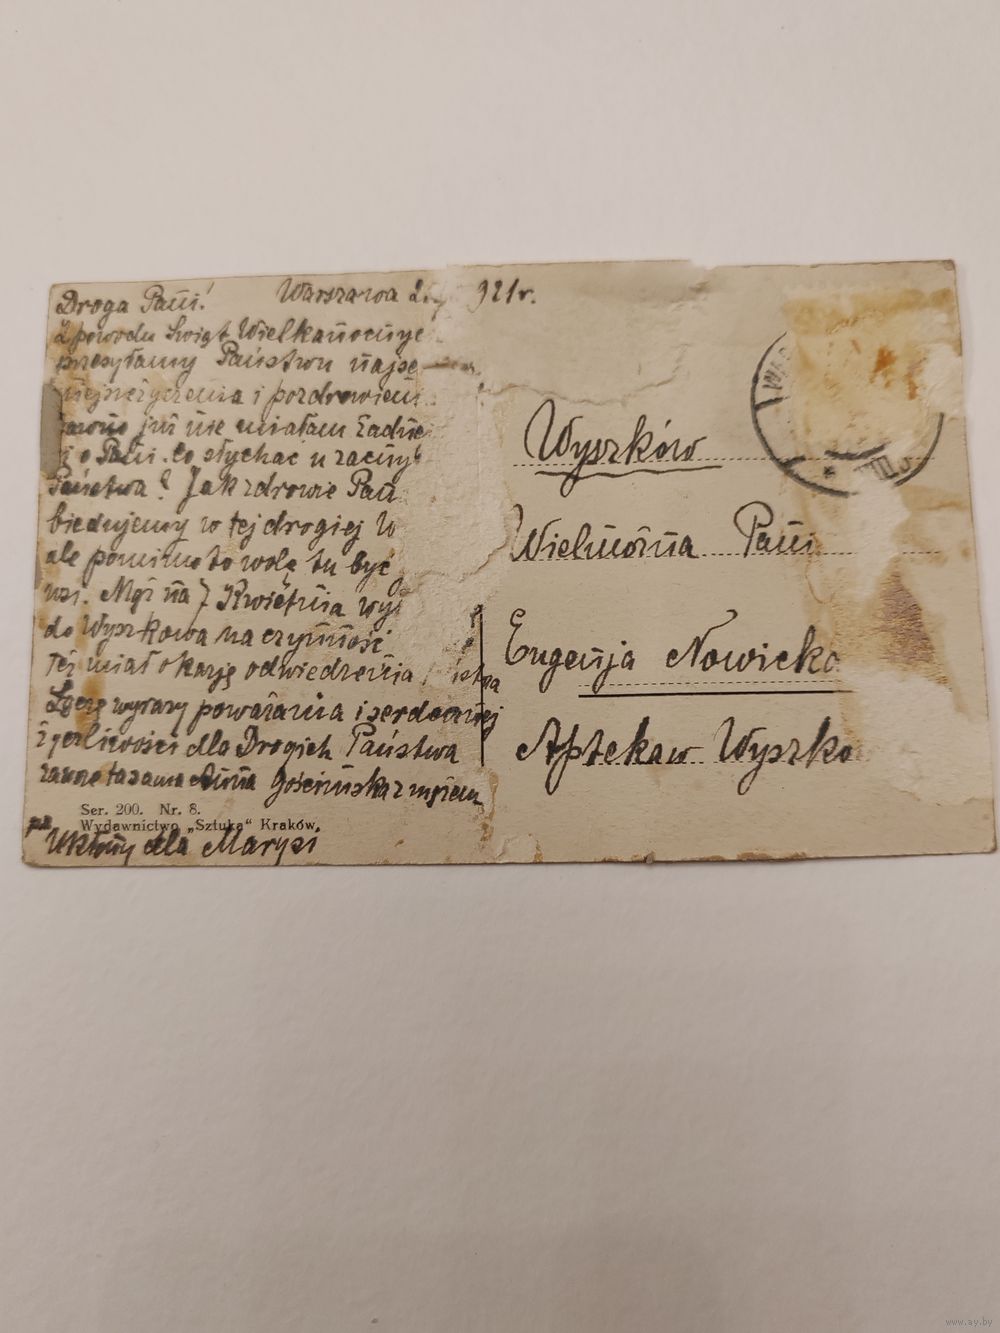 Droga Pani! Warszawa 921r.
Z powodu Swiąt Wielkanocnyc
przesyłamy Państwu najse
niejsze życzenia i pozdrowieni
już nie miałam żadne
o Pani. Co słychać u zacny
Państwa? Jak zdrowie Pań
biedujemy w tej drogiej W
ale pomimo to wolę tu być
wsi. Mąż na 7 Kwietnia wy
do Wyszkowa na czynność
też miał okazję odwiedzenia
Łączę wyrazy poważania i serdecznej
życzliwości dla Drogich Państwa
zawsze ta sama Anna Gościńska z mężem
Ser. 200. Nr. 8.
Wydawnictwo „Sztuka" Kraków.
Ukłony dla Marysi
Wyszków
Wielmożna Pani
Eugenja Nowicka
Apteka w Wyszko
www.ay.by